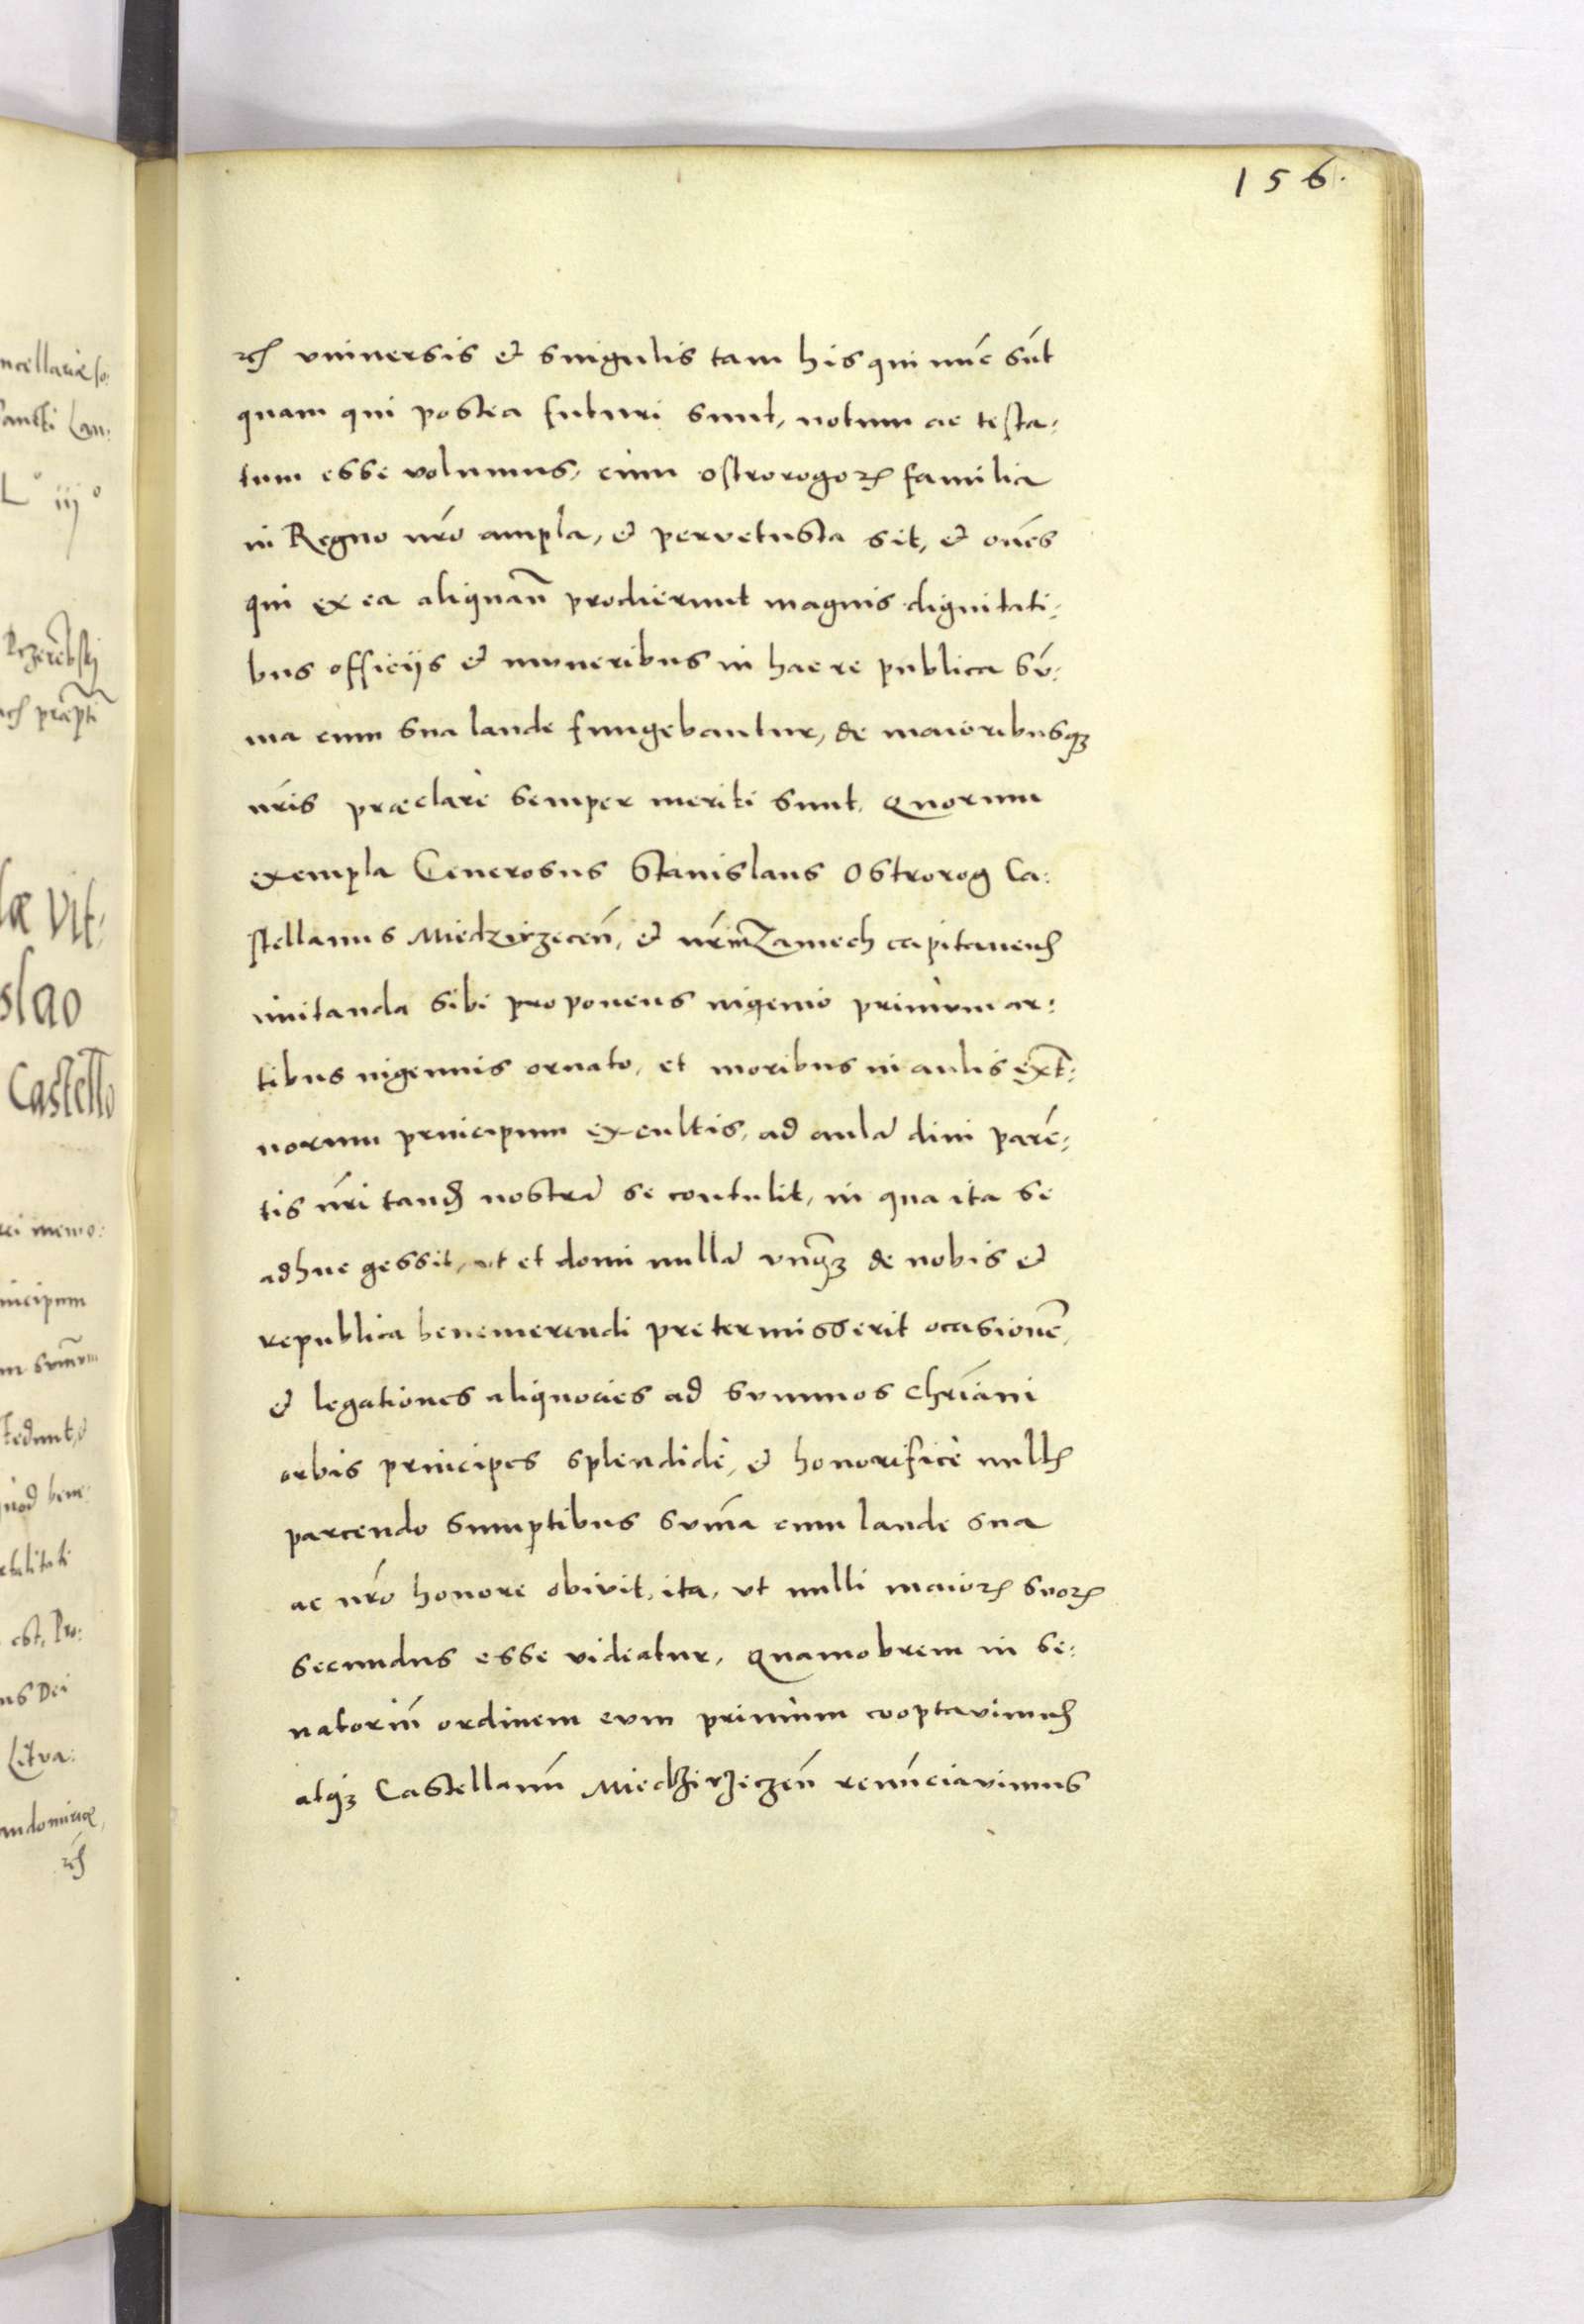 156.
rc̃ vniuersis et singulis tam his qui nũc sũt
quam qui postea futuri sunt, notum ac testa:
tum esse volumus, cum Ostrorogoꝝ familia
in Regno nr̃o ampla, et pervetusta sit, et oẽs
qui ex ea aliquan̄ prodierunt magnis dignitati:
bus officijs et muneribus in hac re publica sũ:
ma cum sua laude fungebantur, de maioribusqꝫ
nr̃is præclarè semper meriti sunt. Quorum
exempla Generosus Stanislaus Ostrorog Ca:
stellanus Miedzyrzecen̄, et nr̃ in Zamech capitaneus
imitanda sibi proponens ingenio primum ar:
tibus ingenuis ornato, et moribus in aulis ext̃:
norum principum excultis, ad aulã diui parẽ:
tis nr̃i tandẽ nostrã se contulit, in qua ita se
adhuc gessit, ut et domi nullã vnq̃ꝫ de nobis et
republica benemerendi pretermisserit ocasionẽ,
et legationes aliquocies ad summos chr̃iani
orbis principes splendidè, et honorificè nullis
parcendo sumptibus sum̃a cum laude sua
ac nr̃o honore obivit, ita, vt nulli maioꝝ suoꝝ
secundus esse videatur. Quamobrem in se:
natoriũ ordinem eum primùm cooptauimus
atqꝫ Castellanũ Miedzirzeczen̄ renũciavimus
ncellariæ
Sancti Lau:
L° iij°
præpti
læ Vit:
slao
Castello
rei memo:
incipum
quod bene:
est, Pro:
ns Dei
Litva:
andomiriæ,
rc̃